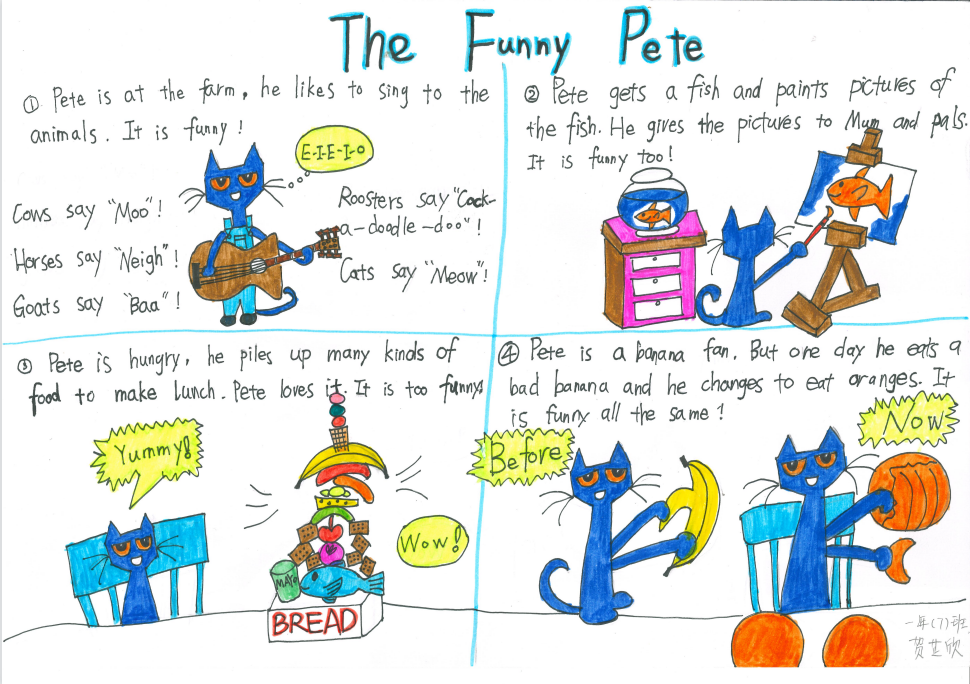 The Funny Pete
① Pete is at the farm, he likes to sing to the
animals. It is funny!
E-I-E-I-O
Cows say "Moo"!
Horses say "Neigh"!
Goats say "Baa"!
Roosters say "Cock-
a-doodle-doo"!
Cats say "Meow"!
② Pete gets a fish and paints pictures of
the fish. He gives the pictures to Mum and pals.
It is funny too!
③ Pete is hungry, he piles up many kinds of
food to make lunch. Pete loves it. It is too funny.
Yummy!
Wow!
MAYO
BREAD
④ Pete is a banana fan. But one day he eats a
bad banana and he changes to eat oranges. It
is funny all the same!
Before
Now
一年(7)班
贾芷欣